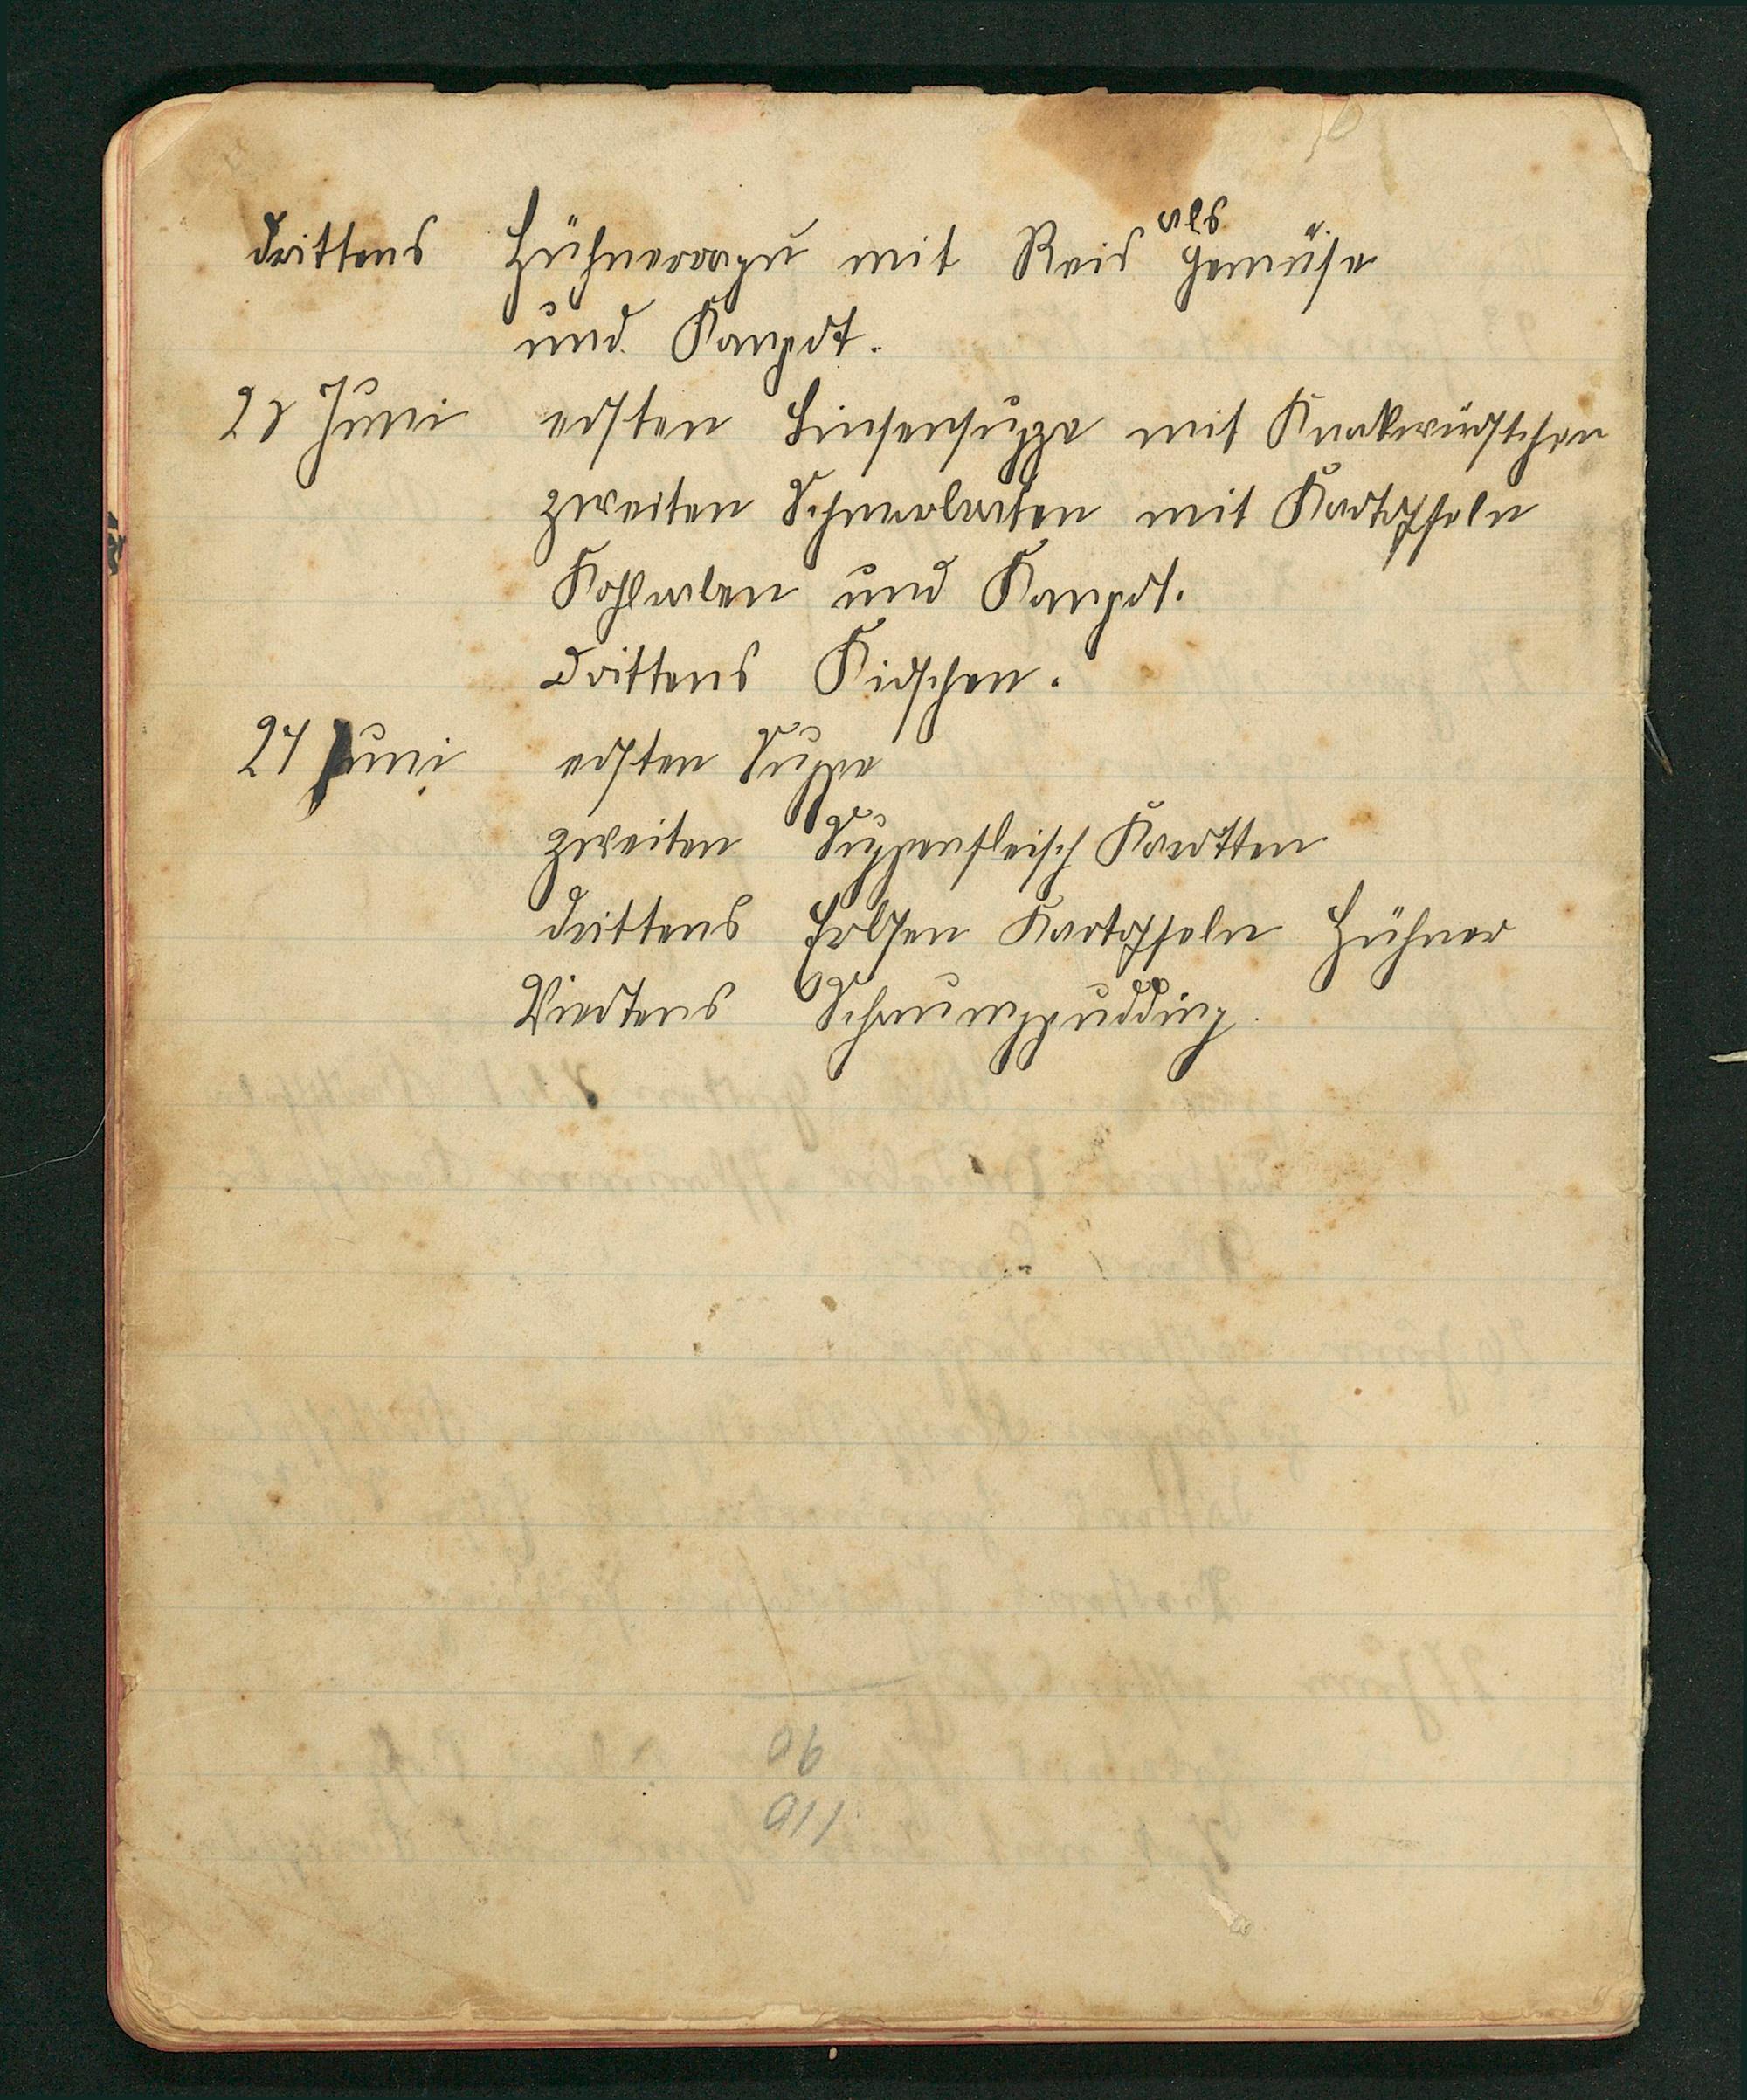 drittens Hühnerragu mit Reis als Gemüse
und Kompot.
28 Juni ersten Linsensuppe mit Knakwürstchen
zweiten Schmorbraten mit Kartoffeln
Kohlraben und Kompot.
drittens Kirschen.
24 Juni ersten Suppe
zweiten Suppenfleisch Karotten
drittens Erbsen Kartoffeln Hühner
Viertens Schaumpudding.
90
110